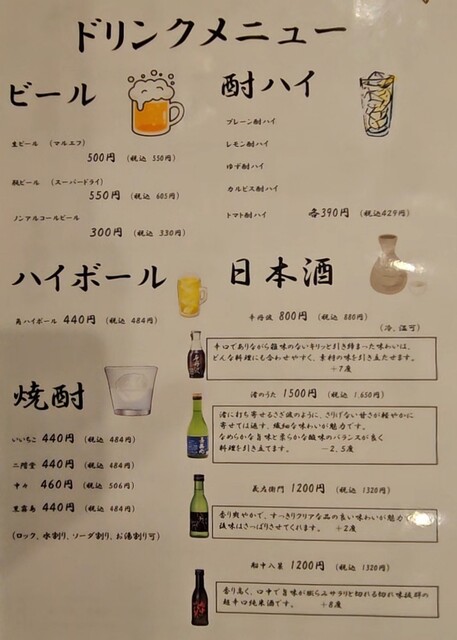 ドリンクメニュー
ビール
生ビール (マルエフ)
500円 (税込 550円)
瓶ビール (スーパードライ)
550円 (税込 605円)
ノンアルコールビール
300円 (税込 330円)
酎ハイ
プレーン酎ハイ
レモン酎ハイ
ゆず酎ハイ
カルピス酎ハイ
トマト酎ハイ 各390円 (税込429円)
ハイボール
角ハイボール 440円 (税込 484円)
焼酎
いいちこ 440円 (税込 484円)
二階堂 440円 (税込 484円)
中々 460円 (税込 506円)
黒霧島 440円 (税込 484円)
(ロック、水割り、ソーダ割り、お湯割り可)
日本酒
辛丹波 800円 (税込 880円)
(冷、温可)
辛口でありながら雑味のないキリッと引き締まった味わいは、
どんな料理にも合わせやすく、素材の味を引き立たせます。
+7度
渚のうた 1500円 (税込 1,650円)
渚に打ち寄せるさざ波のように、さりげない甘さが軽やかに
寄せては返す、繊細な味わいが魅力です。
なめらかな旨味と柔らかな酸味のバランスが良く
料理を引き立てます。 -2.5度
義左衛門 1200円 (税込 1320円)
香り爽やかで、すっきりクリアな品の良い味わいが魅力で
後味はさっぱりさせてくれます。 +2度
船中八策 1200円 (税込 1320円)
香り高く、口中で旨味が膨らみサラリと切れる切れ味抜群の
超辛口純米酒です。 +8度